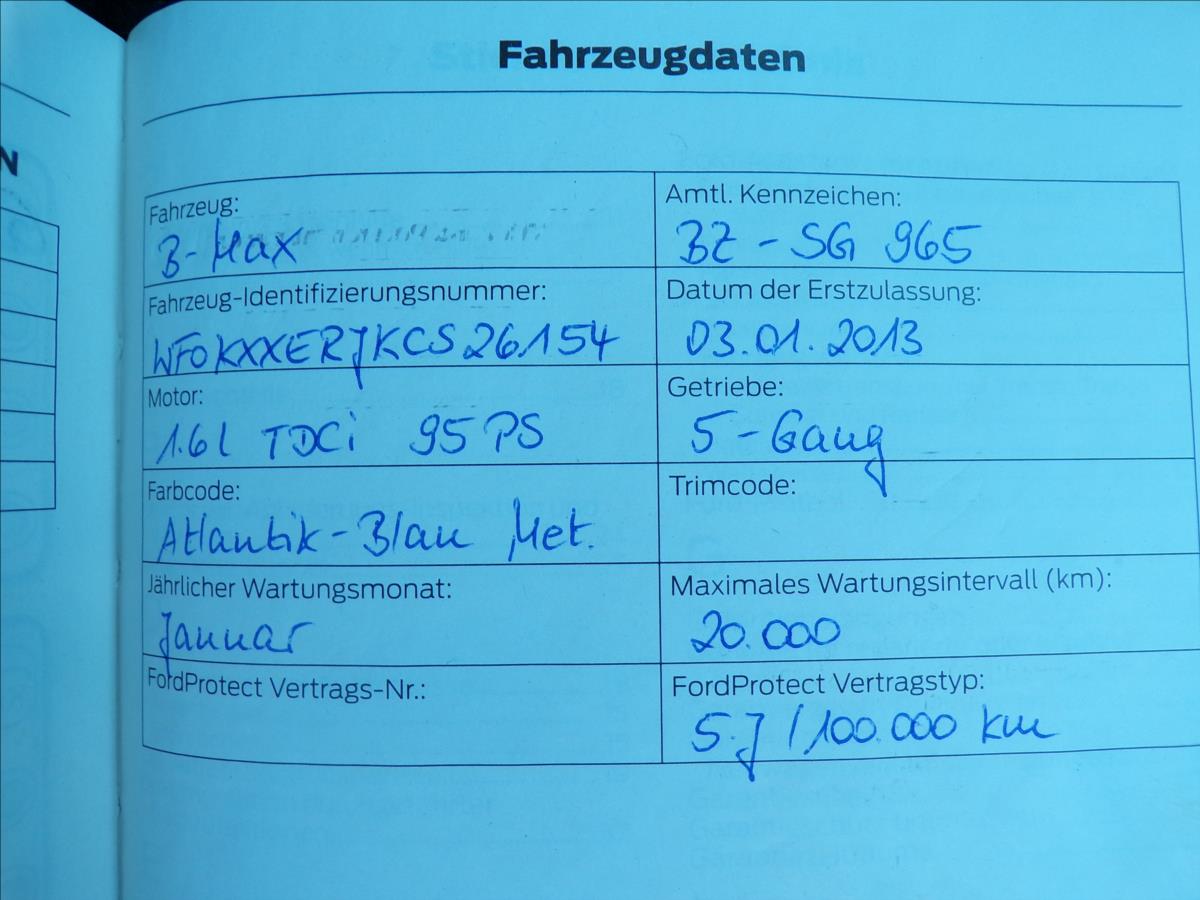 N
Fahrzeugdaten
Fahrzeug:
B-Max
Amtl. Kennzeichen:
BZ - SG 965
Fahrzeug-Identifizierungsnummer:
WF0KXXERJKCS26154
Datum der Erstzulassung:
03.01.2013
Motor:
1.6l TDCi 95 PS
Getriebe:
5-Gang
Farbcode:
Atlantik-Blau Met.
Trimcode:
Jährlicher Wartungsmonat:
Januar
Maximales Wartungsintervall (km):
20.000
FordProtect Vertrags-Nr.:
FordProtect Vertragstyp:
5.J / 100.000 km